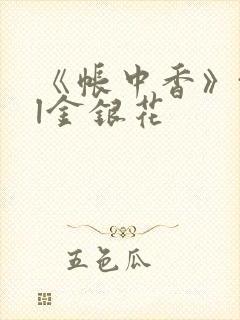 《帐中香》
|金银花
五色瓜